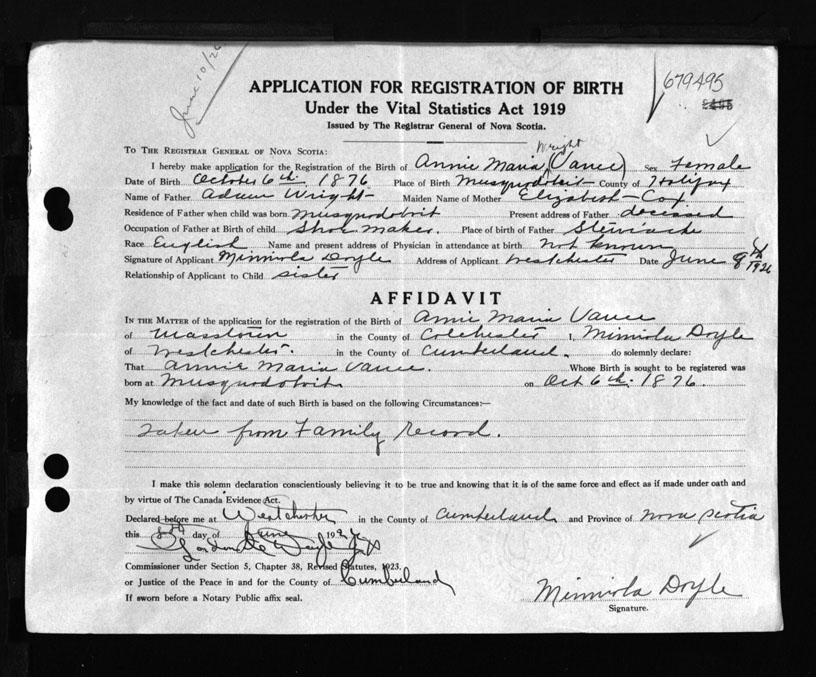 June 10/26
APPLICATION FOR REGISTRATION OF BIRTH
679495
Under the Vital Statistics Act 1919
Issued by The Registrar General of Nova Scotia.
TO THE REGISTRAR GENERAL OF NOVA SCOTIA:
Wright
I hereby make application for the Registration of the Birth of Annie Maria (Vance) Sex Female
Date of Birth October 6th. 1876 Place of Birth Musquodoboit County of Halifax
Name of Father Adam Wright Maiden Name of Mother Elizabeth Cox
Residence of Father when child was born Musquodoboit Present address of Father deceased
Occupation of Father at Birth of child Shoe Maker. Place of birth of Father Stewiacke
Race English Name and present address of Physician in attendance at birth Not known
Signature of Applicant Minniola Doyle Address of Applicant Westchester Date June 9th 1926
Relationship of Applicant to Child sister
AFFIDAVIT
IN THE MATTER of the application for the registration of the Birth of Annie Maria Vance
of Masstown in the County of Colchester I, Minniola Doyle
of Westchester. in the County of Cumberland. do solemnly declare:
That Annie Maria Vance. Whose Birth is sought to be registered was
born at Musquodoboit on Oct 6th. 1876.
My knowledge of the fact and date of such Birth is based on the following Circumstances:—
Taken from Family record.
I make this solemn declaration conscientiously believing it to be true and knowing that it is of the same force and effect as if made under oath and
by virtue of The Canada Evidence Act.
Declared before me at Westchester in the County of Cumberland and Province of Nova Scotia
this day of June 192
Commissioner under Section 5, Chapter 38, Revised Statutes, 1923.
or Justice of the Peace in and for the County of Cumberland
If sworn before a Notary Public affix seal.
Minniola Doyle
Signature.